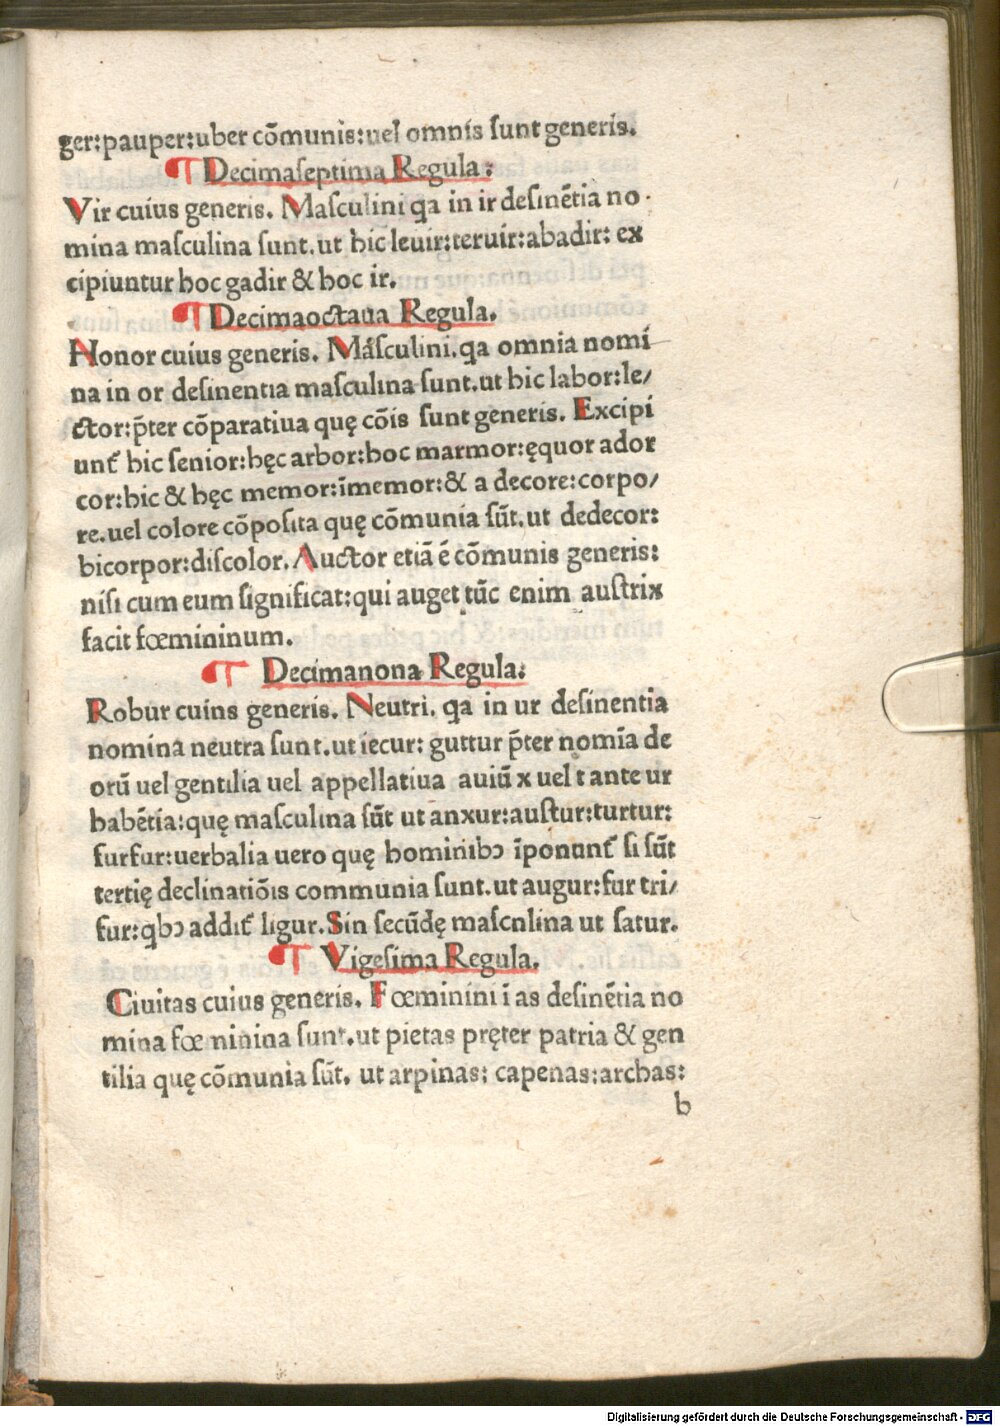 ger:pauper:uber cōmunis:uel omnis sunt generis.
¶ Decimaseptima Regula:
Vir cuius generis. Masculini qa in ir desinētia no·
mina masculina sunt.ut hic leuir:teruir:abadir: ex
cipiuntur hoc gadir & hoc ir.
¶ Decimaoctaua Regula.
Honor cuius generis. Masculini.qa omnia nomi
na in or desinentia masculina sunt.ut hic labor:le/
ctor:p̄ter cōparatiua quę cōis sunt generis. Excipi
unt᷑ hic senior:hęc arbor:hoc marmor:ęquor ador
cor:hic & hęc memor:īmemor:& a decore:corpo/
re.uel colore cōposita quę cōmunia sūt.ut dedecor:
bicorpor:discolor. Auctor etiā ē cōmunis generis:
nisi cum eum significat:qui auget tūc enim austrix
facit fœmininum.
¶ Decimanona Regula:
Robur cuins generis. Neutri. qa in ur desinentia
nomina neutra sunt.ut iecur: guttur p̄ter nomīa de
orū uel gentilia uel appellatiua auiū x uel t ante ur
habētia:quę masculina sūt ut anxur:austur:turtur:
furfur:uerbalia uero quę hominibꝫ īponunt᷑ si sūt
tertię declinatiōis communia sunt.ut augur:fur tri/
fur:qbꝫ addit᷑ ligur. Sin secūdę mascnlina ut satur.
¶ Vigesima Regula.
Ciuitas cuius generis. Fœminini ī as desinētia no
mina fœ minina sunt.ut pietas pręter patria & gen
tilia quę cōmunia sūt. ut arpinas: capenas:archas:
b
Digitalisierung gefördert durch die Deutsche Forschungsgemeinschaft - DFG